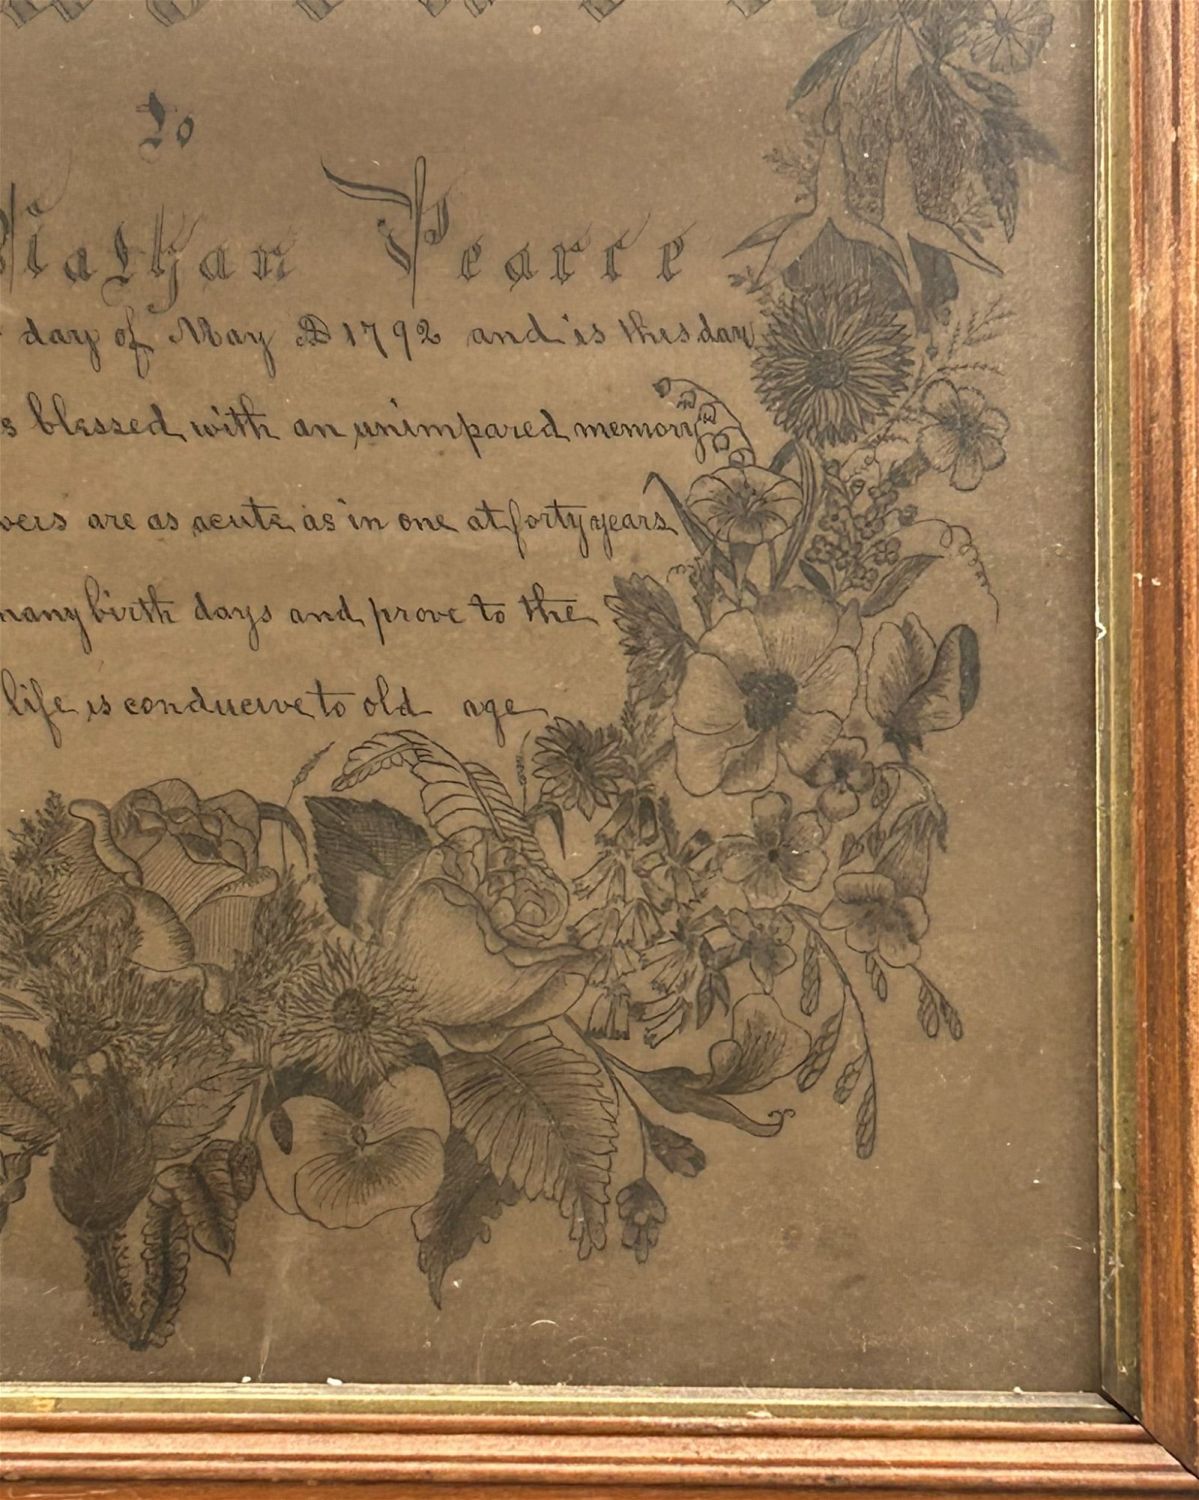 To
Nathan Pearce
day of May AD 1792 and is this day
s blessed with an unimpared memory
wers are as acute as in one at forty years
many birth days and prove to the
life is conducive to old age